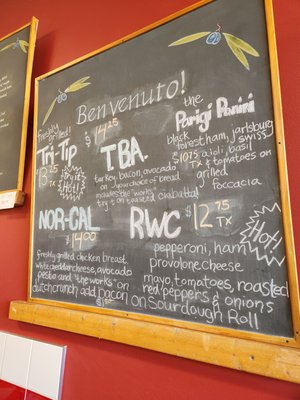 Benvenuto!
Freshly
grilled!
Tri-Tip
13 25
TX
Hot!
$14 25
TBA.
turkey, bacon, avocado
on your choice of bread
includes the "works"
try on toasted ciabatta!
the
Parigi Panini
black
forest ham, jarlsburg
swiss
$10 75
TX
aioli, basil
& tomatoes on
grilled
foccacia
NOR-CAL
$14 00
freshly grilled chicken breast,
white cheddar cheese, avocado
pesto and "the works" on
dutch crunch add bacon
RWC
$12 75
TX
Hot!
pepperoni, ham
provolone cheese
mayo, tomatoes, roasted
red peppers & onions
on Sourdough Roll